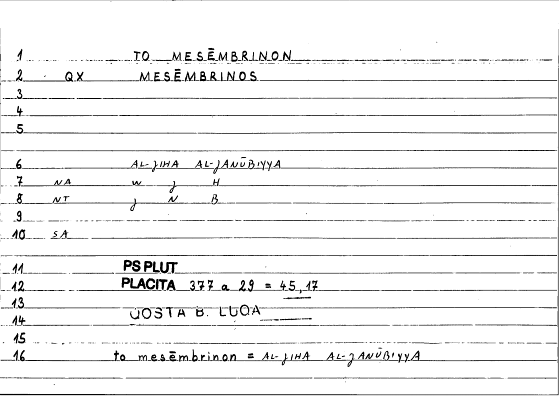 1 TO MESĒMBRINON
2 QX MESĒMBRINOS
3
4
5
6 AL-JIHA AL-JANŪBIYYA
7 NA W J H
8 NT J N B
9
10 SA
11 PS PLUT
12 PLACITA 377 a 29 = 45,17
13 QOSTA B. LUQA
14
15
16 to mesēmbrinon = AL-JIHA AL-JANŪBIYYA